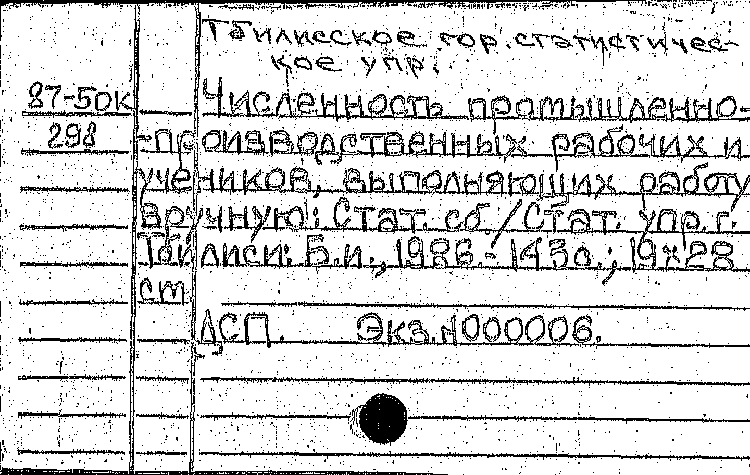 Тбилисское гор. статистичес-
кое упр.
87-5ок Численность промышленно-
298 -производственных рабочих и
учеников, выполняющих работу
вручную: Стат. сб./Стат. упр. г.
Тбилиси: Б.и., 1986.- 143с.; 19х28
см
ДСП. Экз.N000006.